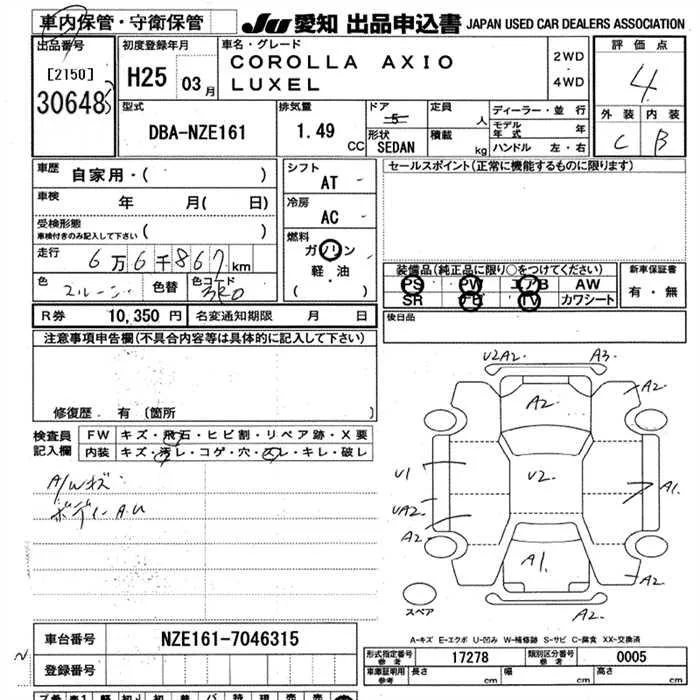 車内保管・守衛保管
JU 愛知 出品申込書 JAPAN USED CAR DEALERS ASSOCIATION
出品番号
[2150]
30648
初度登録年月
H25 03 月
車名・グレード
COROLLA AXIO
LUXEL
2WD
・
4WD
評価点
4
外装 内装
C B
型式
DBA-NZE161
排気量
1.49 CC
ドア
5
形状
SEDAN
定員
人
積載
kg
ディーラー・並行
モデル年式 年
ハンドル 左・右
車歴
自家用・( )
車検
年 月( 日)
受検形態
車検付きのみ記入して下さい ( )
走行
6万6千867 km
色
ブルー
色替
色コード
シフト
AT
冷房
AC
燃料
ガソリン
・
軽・油
( )
セールスポイント(正常に機能するものに限ります)
装備品(純正品に限り○をつけてください)
PS PW エアB AW
SR ナビ TV カワシート
新車保証書
有・無
後日品
R券 10,350 円 名変通知期限 月 日
注意事項申告欄(不具合内容等は具体的に記入して下さい)
修復歴・有 〔箇所 〕
検査員
記入欄
FW キズ・飛石・ヒビ割・リペア跡・X要
内装 キズ・汚レ・コゲ・穴・スレ・キレ・破レ
A/Wキズ
ボディーA.U
U2A2. A3.
A2
A2.
U1 U2. A1.
UA2.
A2
A1.
A2
スペア A2.
A-キズ E-エクボ U-凹み W-補修跡 S-サビ C-腐食 XX-交換済
車台番号 NZE161-7046315
登録番号
形式指定番号 参考 17278 類別区分番号 参考 0005
車庫証明用 参考 長さ cm 幅 cm 高さ cm